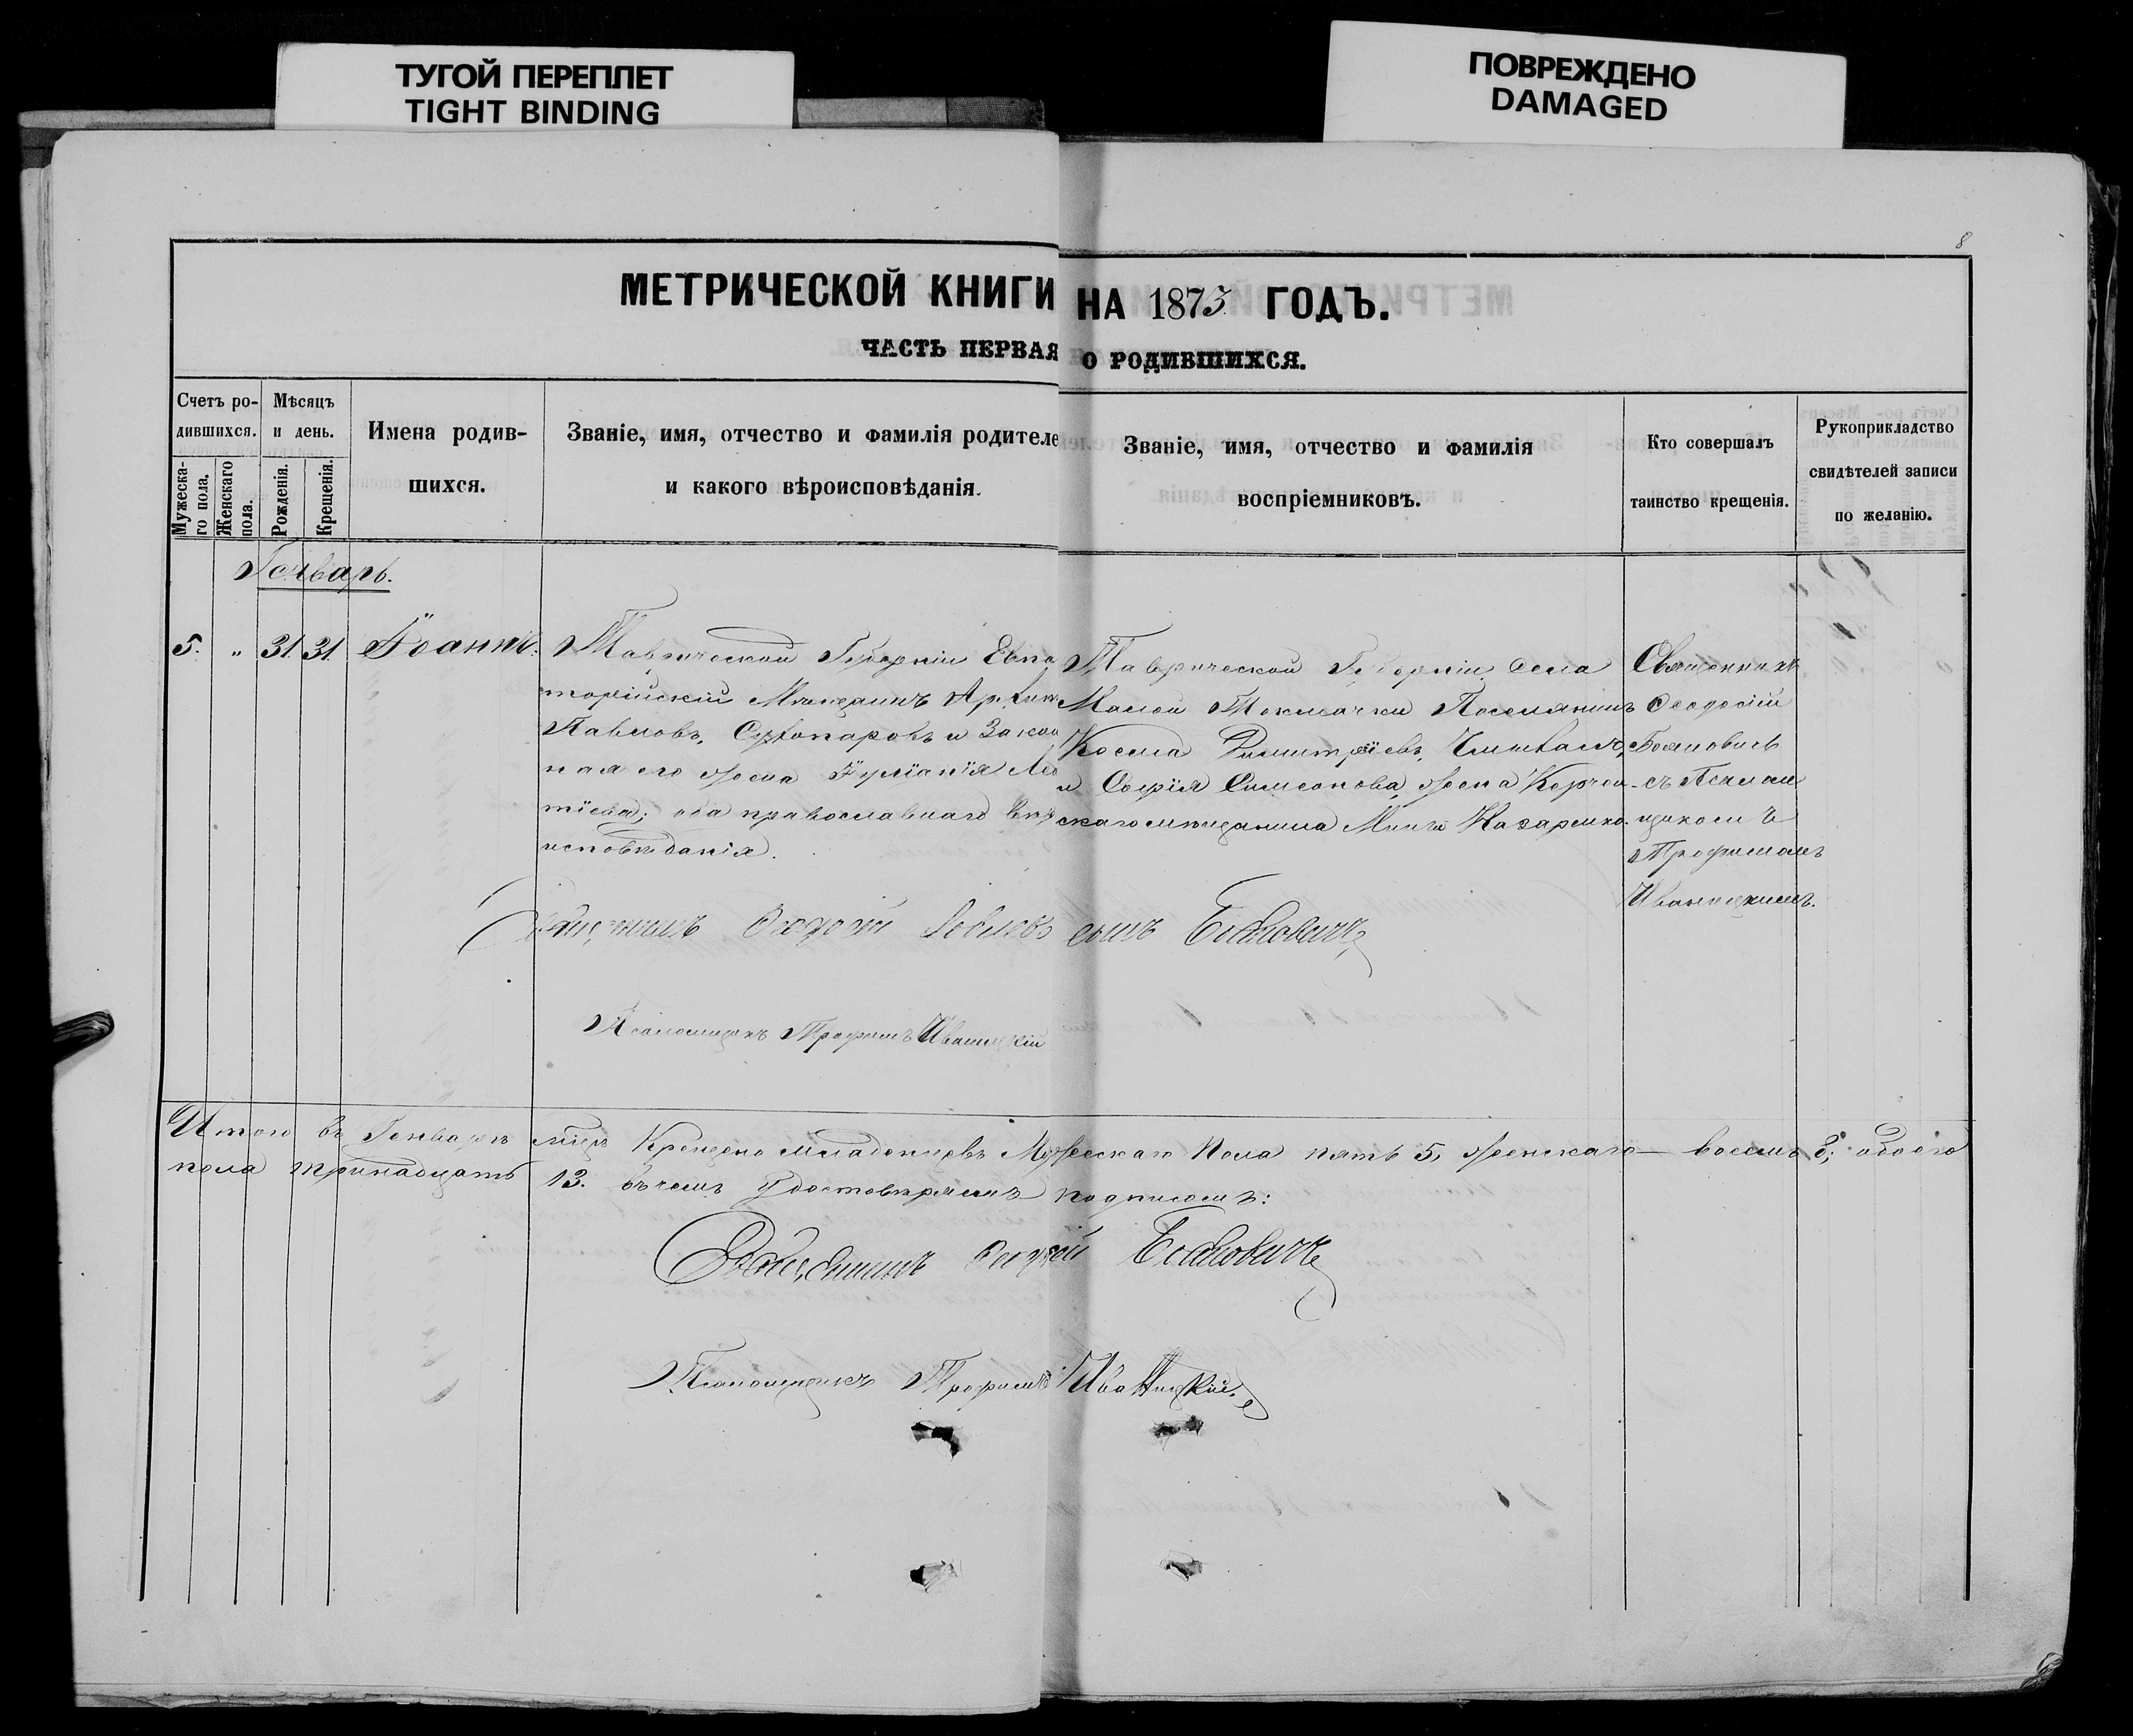 ТУГОЙ ПЕРЕПЛЕТ
TIGHT BINDING
ПОВРЕЖДЕНО
DAMAGED
8
МЕТРИЧЕСКОЙ КНИГИ НА 1873 ГОДЪ.
ЧАСТЬ ПЕРВАЯ О РОДИВШИХСЯ.
Счетъ ро-
дившихся.
Мужеска-
го пола.
Женскаго
пола.
Мѣсяцъ
и день.
Рожденія.
Крещенія.
Имена родив-
шихся.
Званіе, имя, отчество и фамилія родителе
и какого вѣроисповѣданія.
Званіе, имя, отчество и фамилія
воспріемниковъ.
Кто совершалъ
таинство крещенія.
Рукоприкладство
свидѣтелей записи
по желанію.
Генварь.
5. " 31. 31. Іоаннъ.
Таврической Губерніи Евпа
торійскій Мѣщанинъ
Павловъ, Сухопаровъ и Закон
ная его жена Іуліанія Ле
тіева; оба православнаго вѣро
исповѣданія.
Таврической Губерніи села
Малой Токмачки Поселянинъ
Косма Димитріевъ,
и Софія Симеонова, жена Керчен-
скаго мѣщанина Назаренко.
Священникъ
Ѳеодосій
Бояновичъ
съ Псалом
щикомъ
Трофимомъ
Иваницкимъ.
Священникъ Ѳеодосій сынъ Бояновичъ
Псаломщикъ Трофимъ Иваницкій
Итого въ Генварѣ м͠цѣ Крещено младенцевъ Мужескаго Пола пять 5, женскаго — восемь 8; обоего
пола тринадцать 13. въ чемъ удостовѣряемъ подписомъ:
Священникъ Ѳеодосій Бояновичъ
Псаломщикъ Трофимъ Иваницкій.